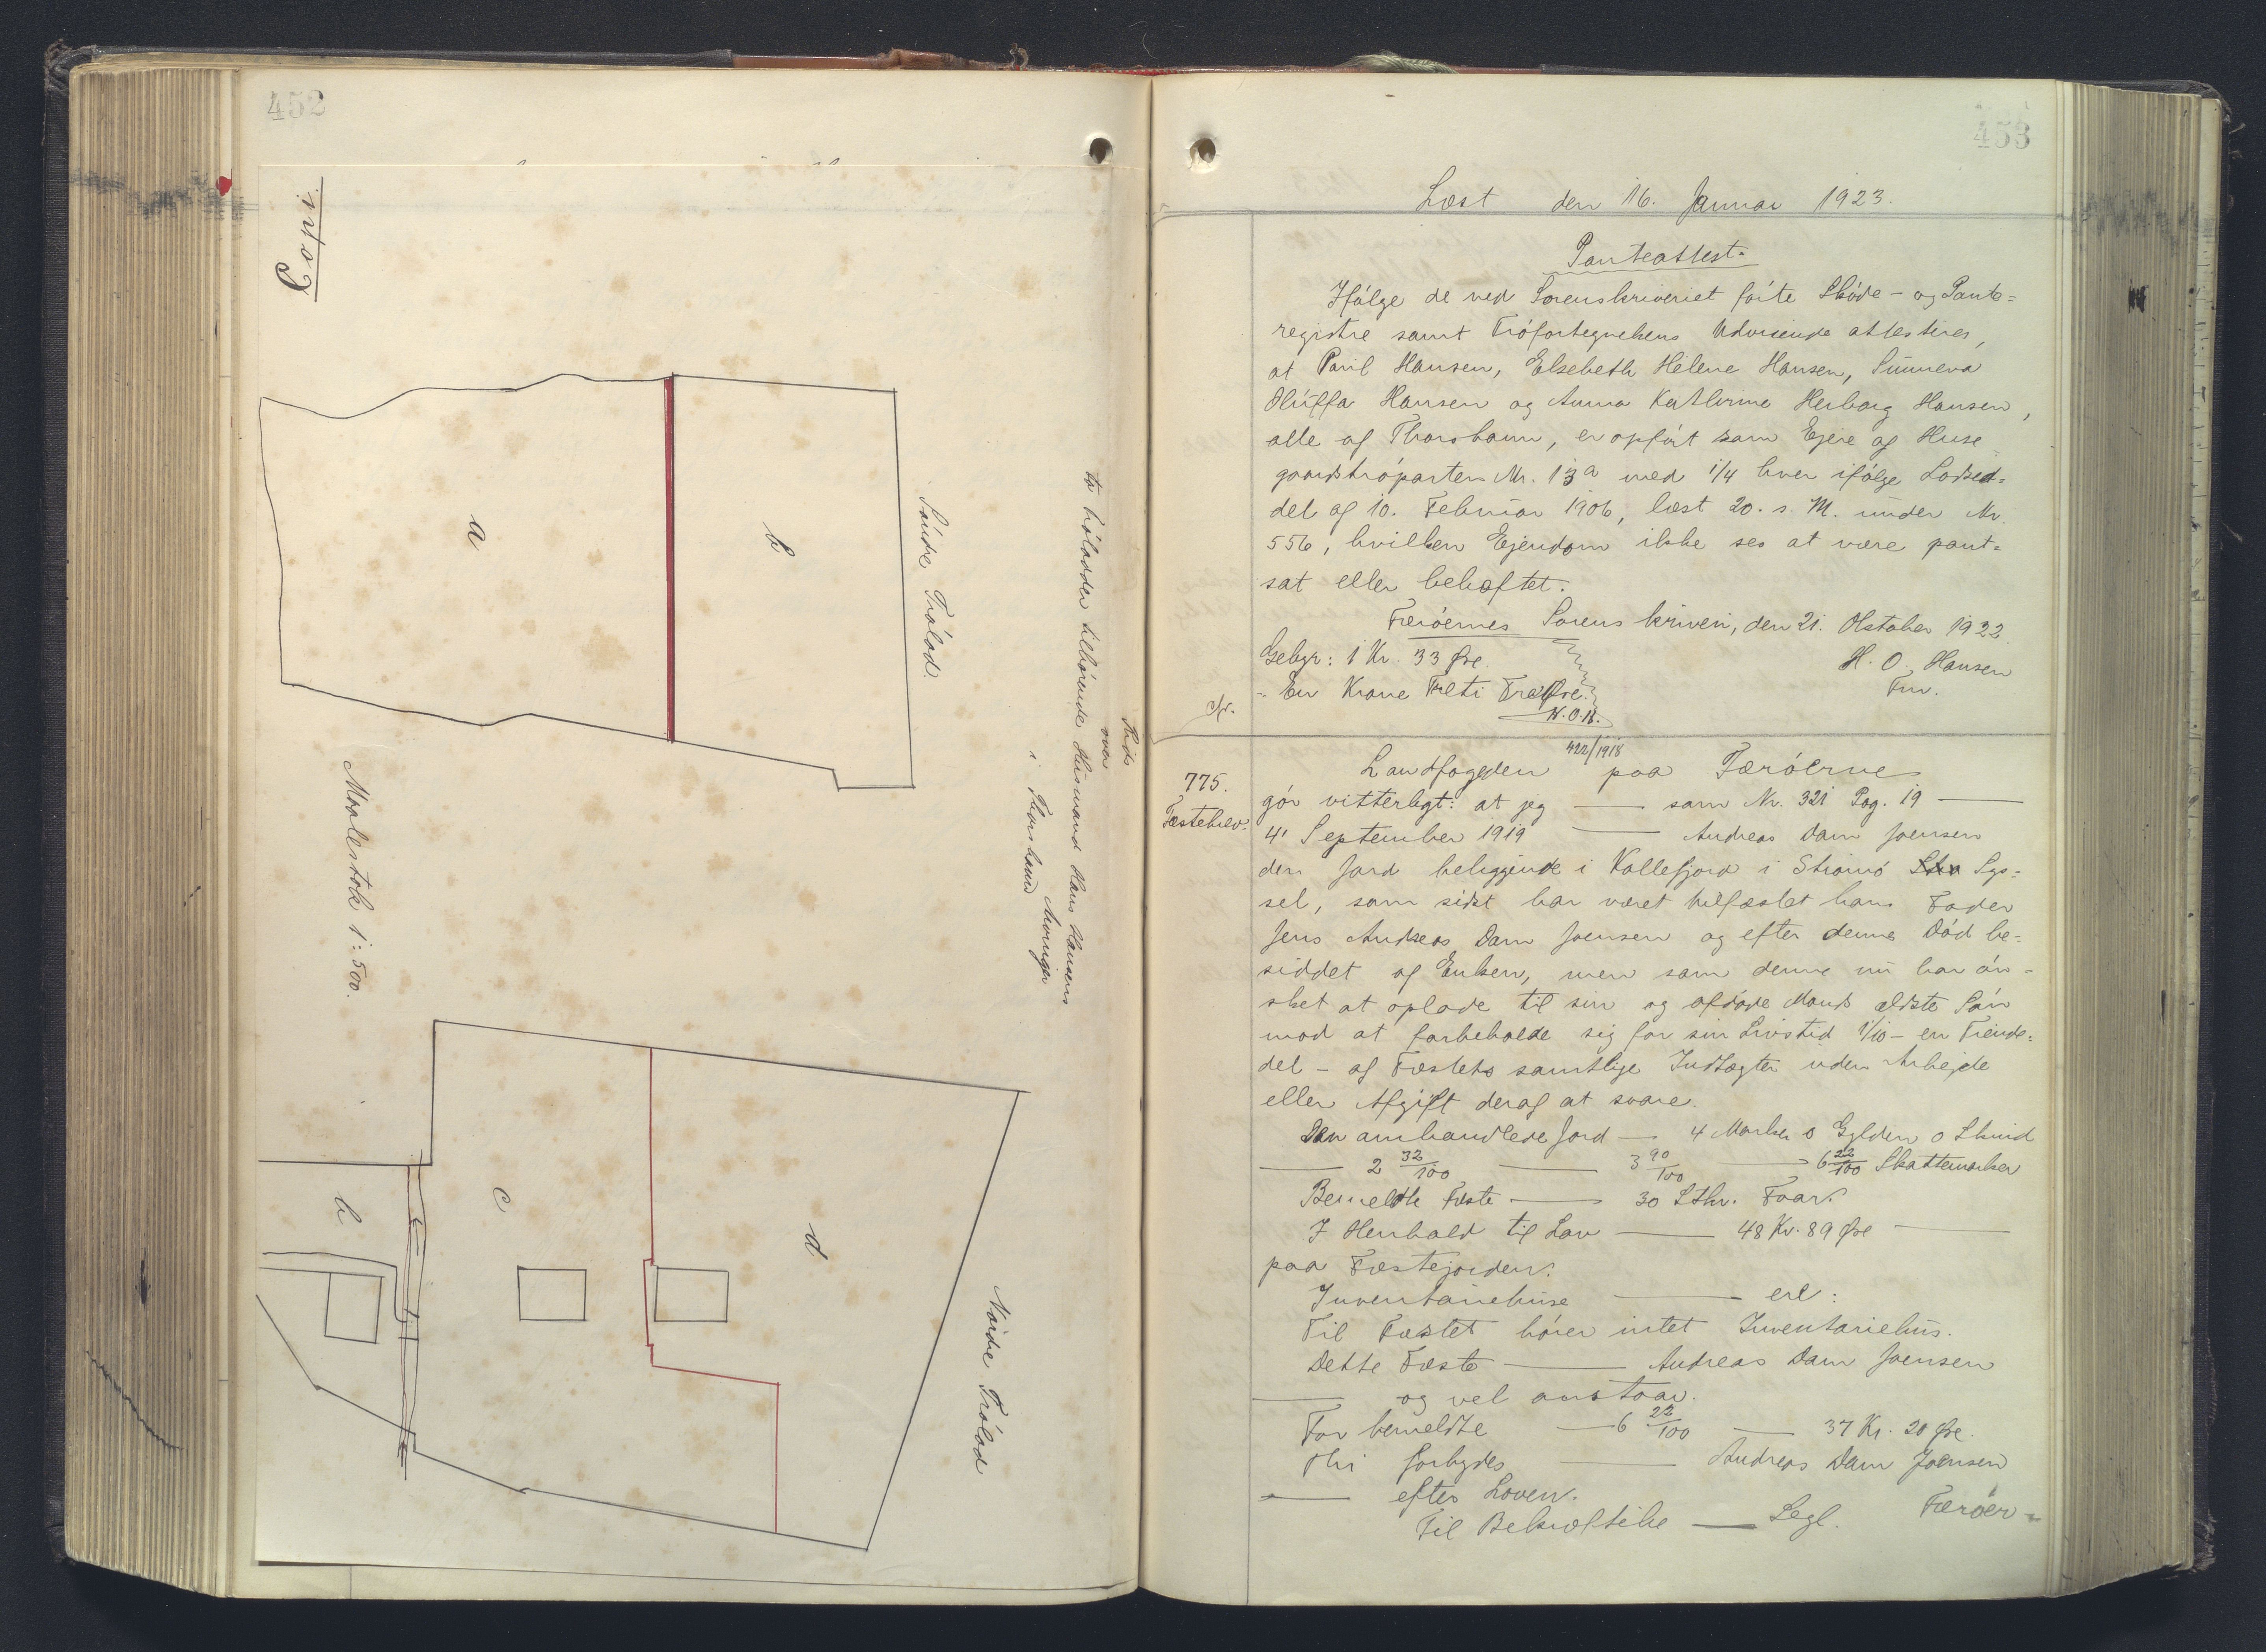 452
Copi
Rids
over
to tròlodder tilhørende Husmand Hans Hansens Arvinger
i Thorshavn
Søndre Trólod.
a
b
Maalestok 1:500.
Nordre Trólod
b
c
d
453
Læst den 16. Januar 1923.
Panteattest.
Ifólge de ved Sorenskriveriet fórte Skóde- og Pante=
registre samt Trófortegnelsens Udvisende attesteres,
at Poul Hansen, Elsebeth Helene Hansen, Sunneva
Oluffa Hansen og Anna Kathrine Herborg Hansen,
alle af Thorshavn, er opfórt som Ejere og Huse
gaardstróparten Nr. 13a med 1/4 hver ifólge Lodsed=
del af 10. Februar 1906, læst 20. s. M. under Nr.
556, hvilken Ejendom ikke ses at være pant=
sat eller behæftet.
Færóernes Sorenskriveri, den 21. Oktober 1922
Gebyr: 1 Kr. 33 Øre.
H. O. Hansen
- En Krone Treti Tre Øre.
Fm.
H.O.H.
422/1918
775.
Fæstebrev.
Landfogden paa Færóerne
gór vitterligt: at jeg — som Nr. 321 Pag. 19 —
4' September 1919 — Andreas Dam Joensen
den Jord beliggende i Kollefjord i Stromó Sys=
sel, som sidst har været bilfæstet hans Fader
Jens Andreas Dam Joensen og efter denne Dód be=
siddet af Enken, men som denne nu har ón=
sket at oplade til sin og afdóde Mands ældste Són
mod at forbeholde sig for sin Livstid 1/10 - en Tiende=
del - af Fæstets samtlige Indtægter uden Arbejde
eller Afgift deraf at svare.
Den omhandlede Jord — 4 Marker 0 Gylden 0 Skind
— 2 32/100 — 3 90/100 — 6 22/100 Skattemarker
Bemeldte Fæste — 30 Sthr. Faar.
I Henhold til Lov — 48 Kr. 89 Øre —
paa Fæstejorden.
Inventariehuse — erl:
Til Fæstet hórer intet Inventariehus.
Dette Fæste — Andreas Dam Joensen
— og vel anstaar.
For bemeldte — 6 22/100 — 37 Kr. 20 Øre.
Thi forbydes — Andreas Dam Joensen
— efter Loven.
Til Bekræftelse — Segl. Færóer=